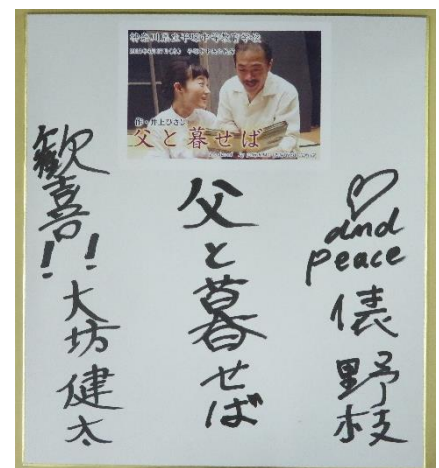 神奈川県立平塚中等教育学校
作・井上ひさし
父と暮せば
♡
and
peace
俵野枝
父と暮せば
歓喜!!
大坊健太